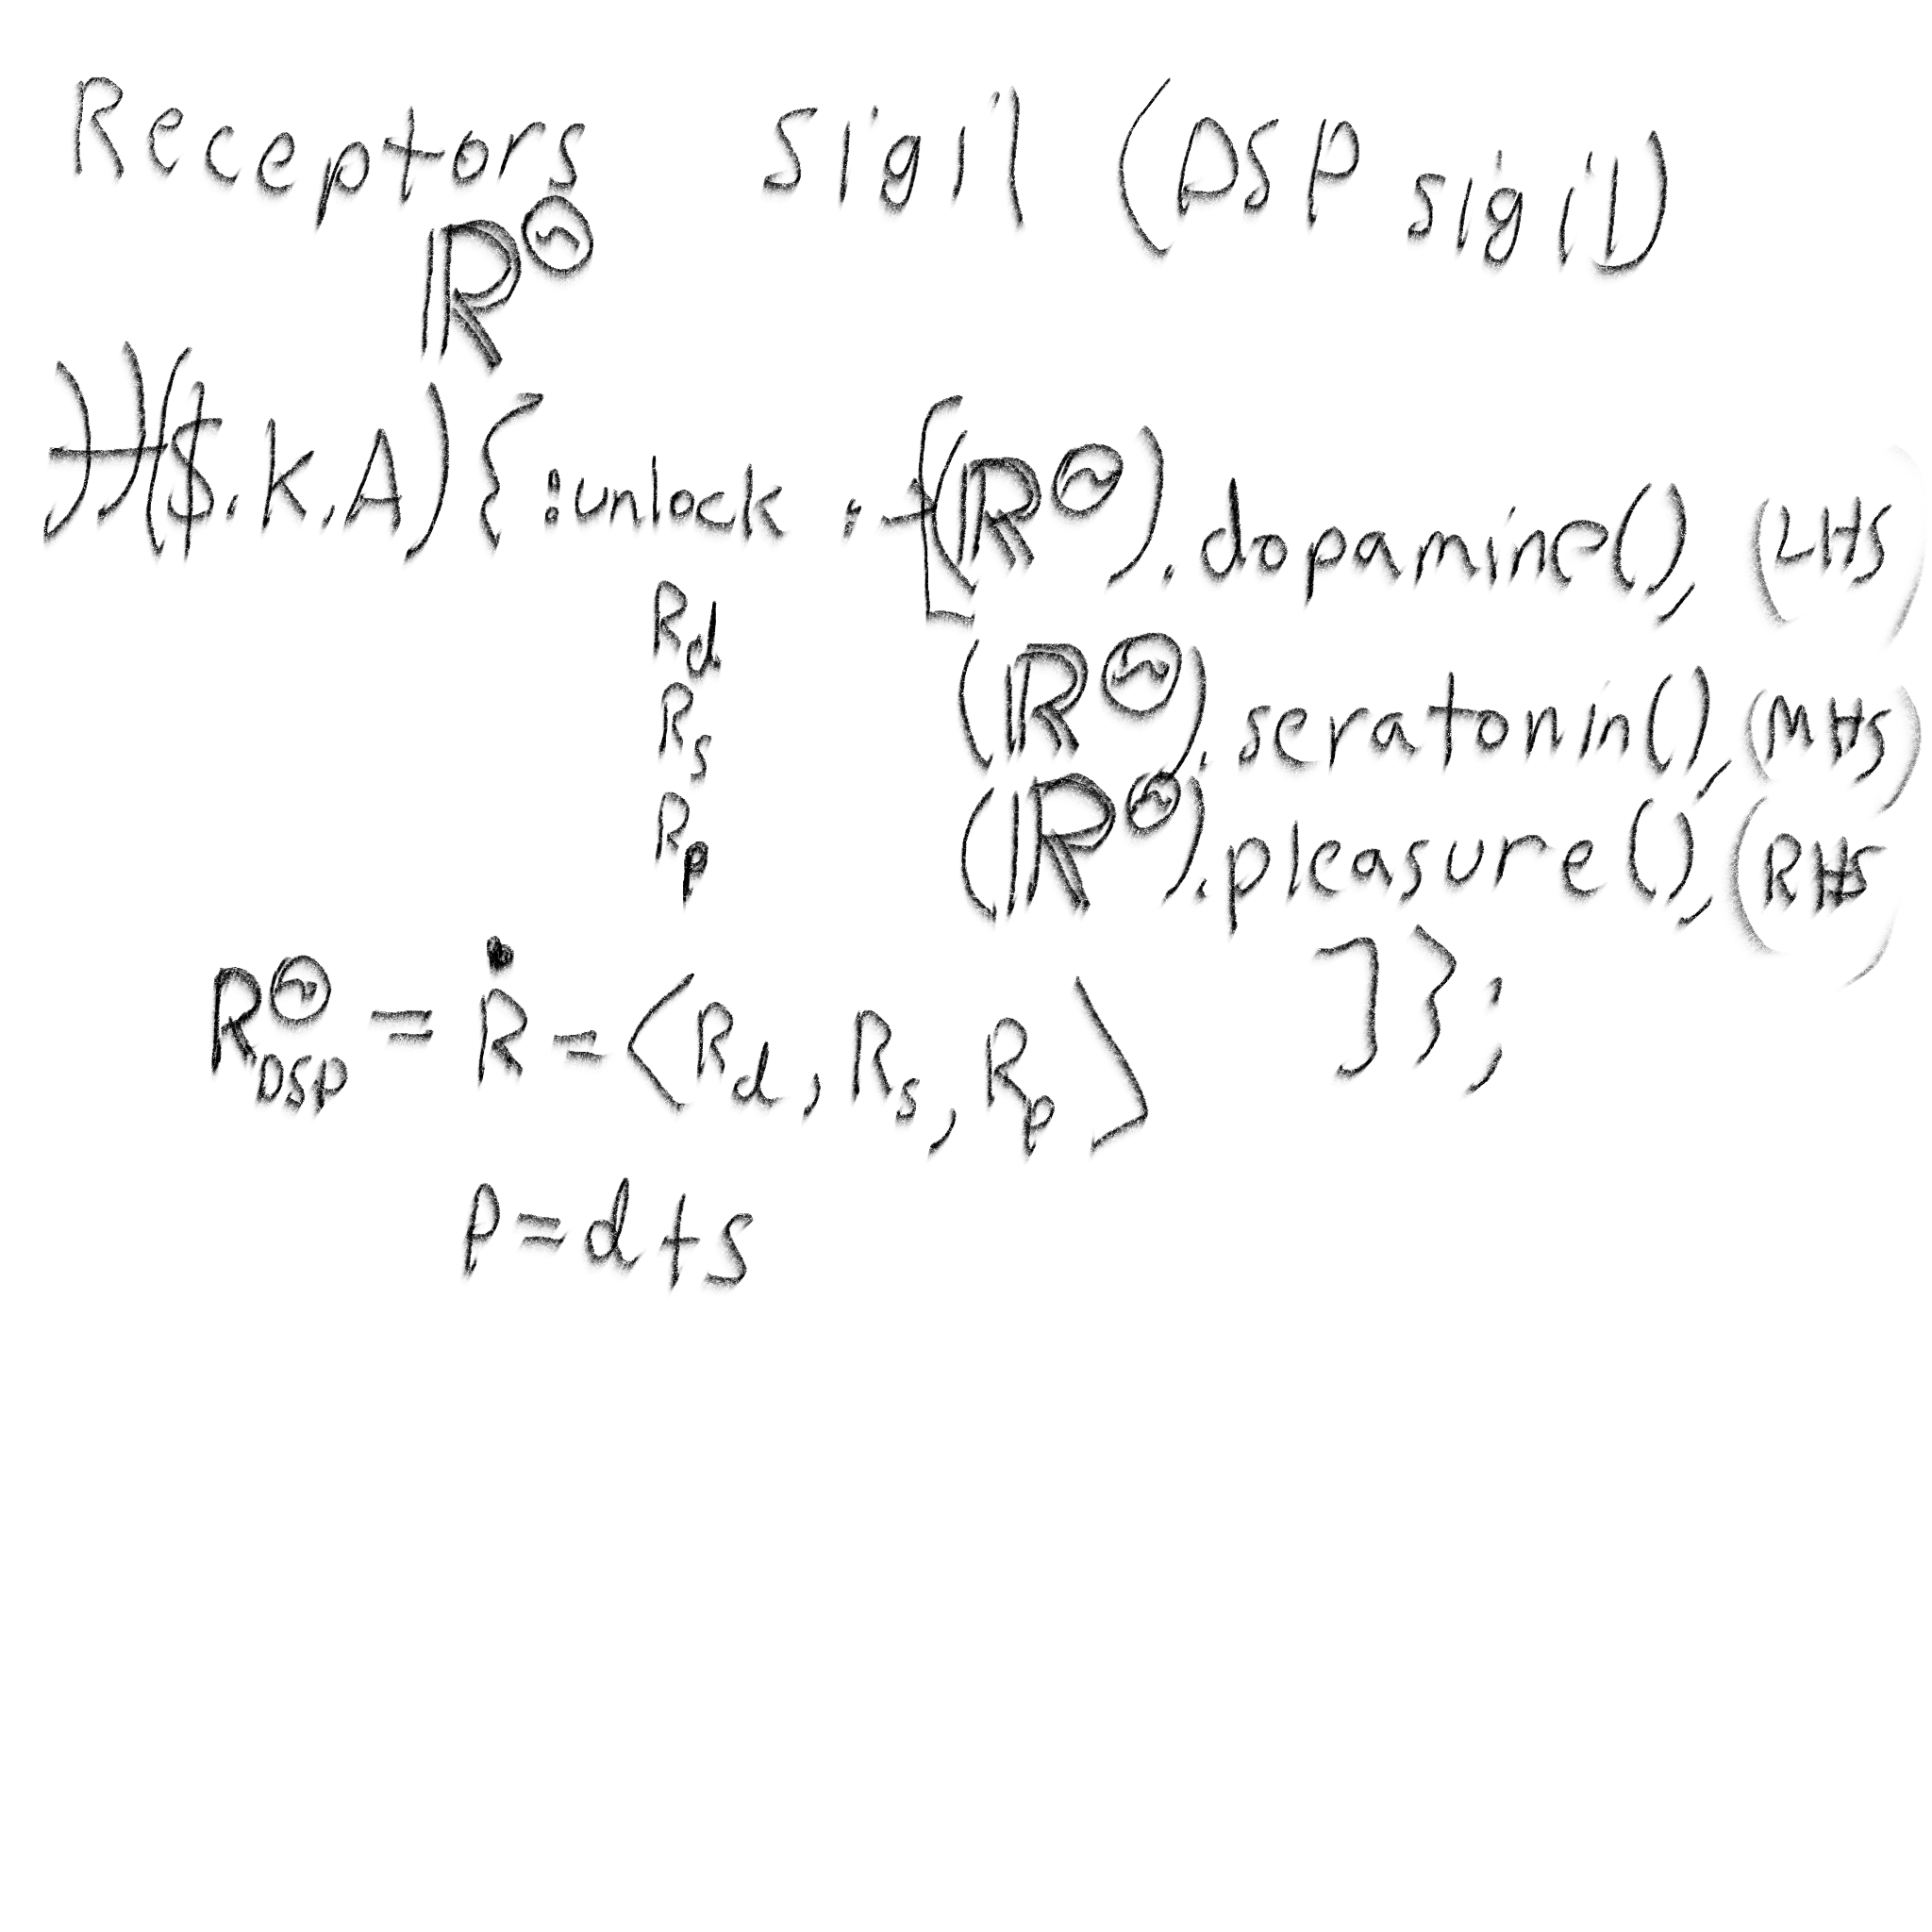 Receptors sigil (DSP sigil)
ℝ^㋡
H($.K.A){:unlock :→[(ℝ^⊖).dopamine(), (LHS)
R_d
(ℝ^⊖).seratonin(), (MHS)
R_s
(ℝ^⊖).pleasure(), (RHS)
R_p
R^⊖_DSP = Ṙ = ⟨R_d, R_s, R_p⟩ ]};
P=d+s